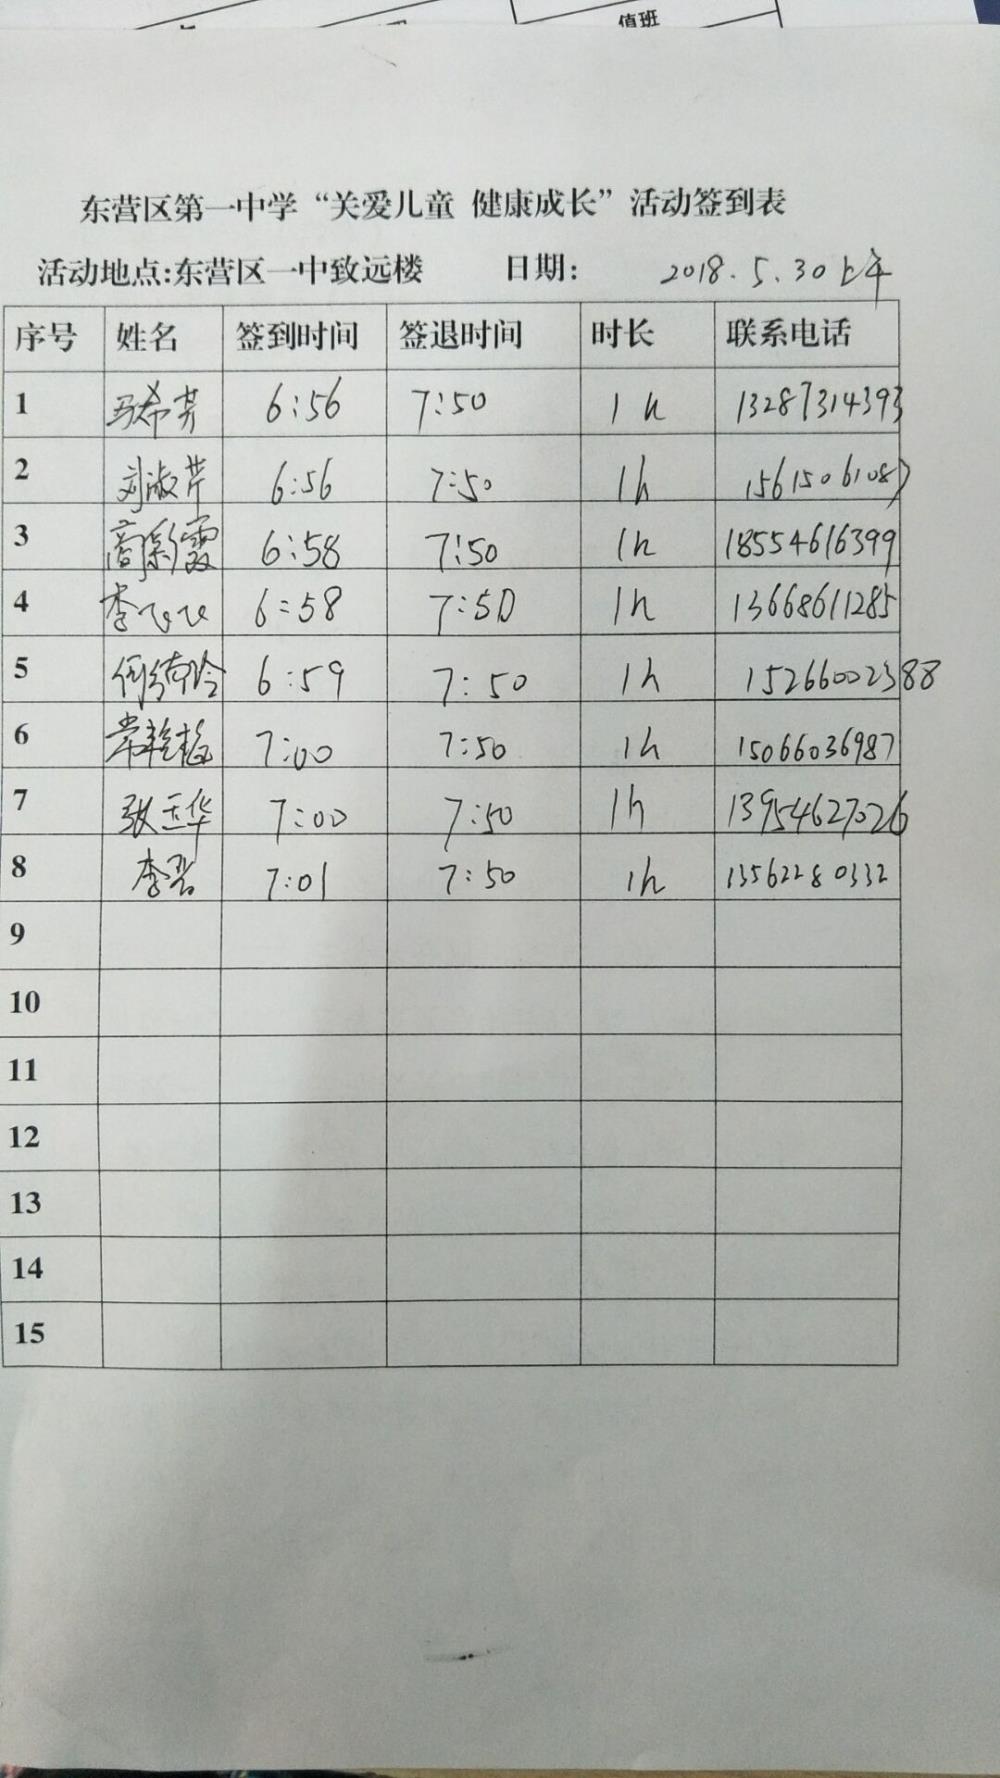 值班
东营区第一中学“关爱儿童 健康成长”活动签到表
活动地点:东营区一中致远楼 日期: 2018.5.30上午
序号 姓名 签到时间 签退时间 时长 联系电话
1 马希芹 6:56 7:50 1h 13287314393
2 刘淑芹 6:56 7:50 1h 15615061087
3 商彩霞 6:58 7:50 1h 18554616399
4 李飞飞 6:58 7:50 1h 13668611285
5 6:59 7:50 1h 15266002388
6 常艳梅 7:00 7:50 1h 15066036987
7 张玉华 7:00 7:50 1h 13954627026
8 李 7:01 7:50 1h 13562280332
9
10
11
12
13
14
15